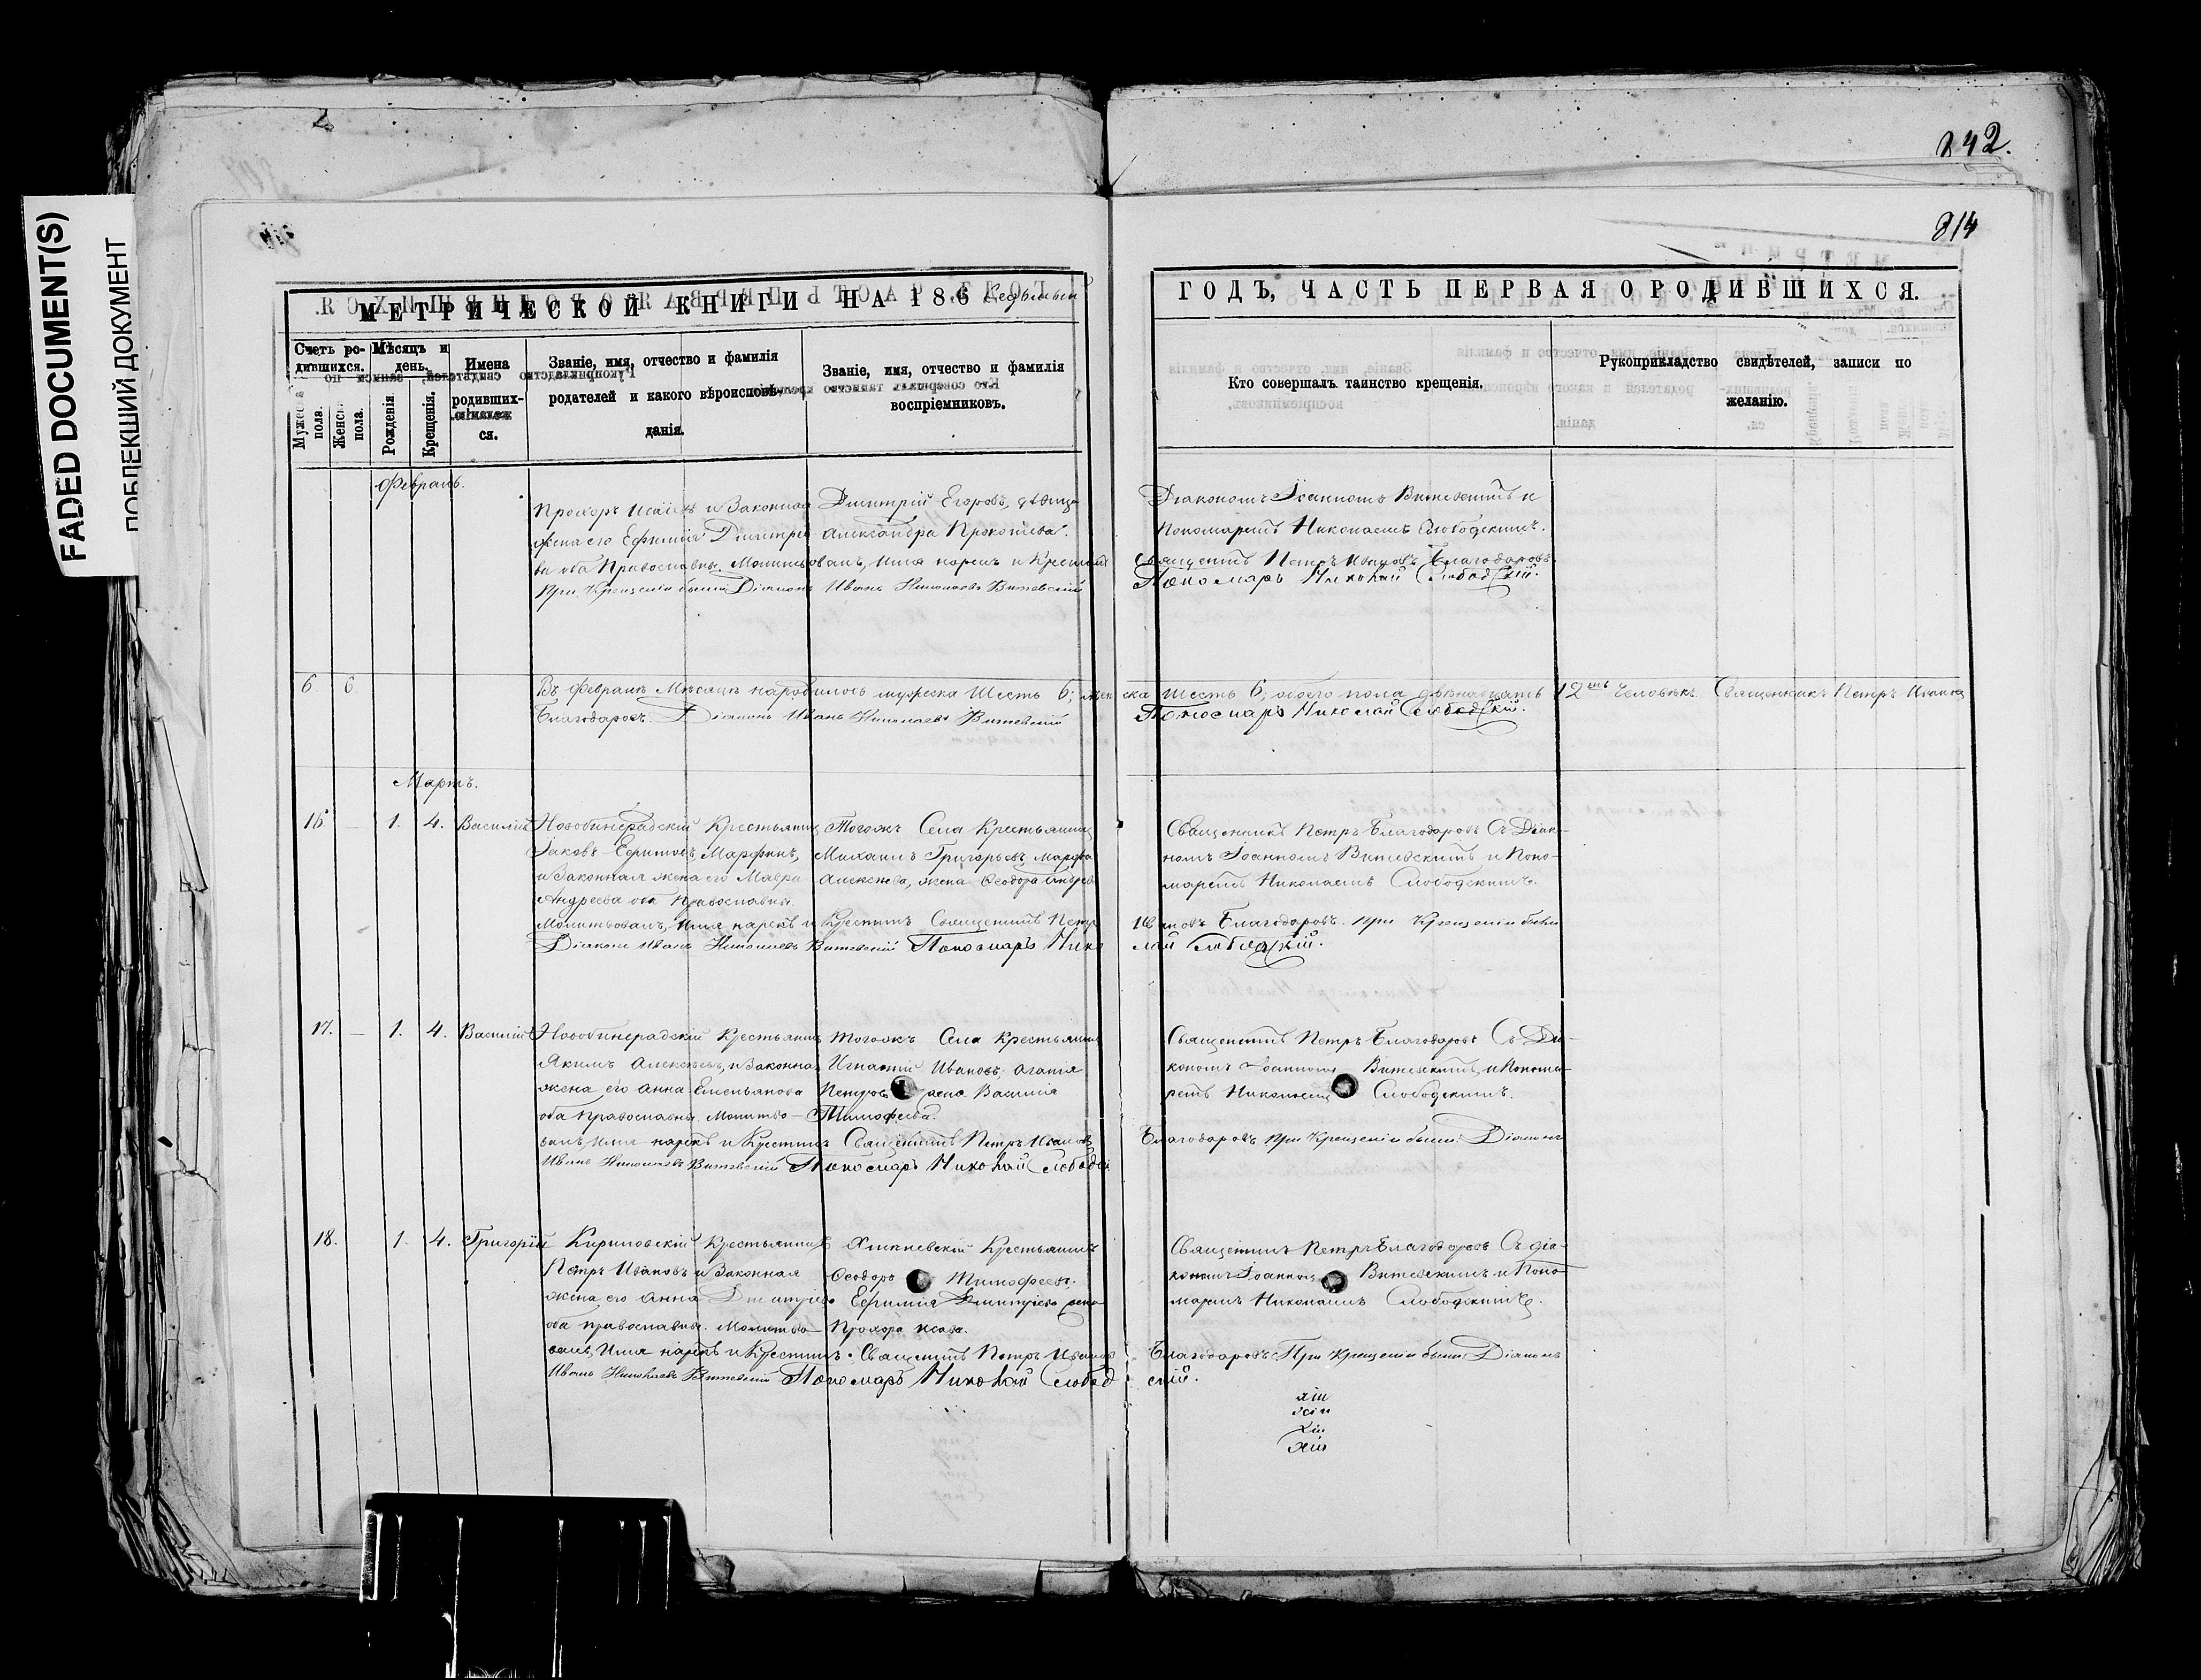 FADED DOCUMENT(S)
ПОБЛЕКШИЙ ДОКУМЕНТ
242.
814
МЕТРИЧЕСКОЙ КНИГИ НА 186 седьмый
ГОДЪ, ЧАСТЬ ПЕРВАЯ О РОДИВШИХСЯ.
Счетъ ро-
дившихся.
Мужеска
пола.
Женск.
пола.
Мѣсяцъ и
день.
Рожденія
Крещенія.
Имена
родивших-
ся.
Званіе, имя, отчество и фамилія
родителей и какого вѣроисповѣ-
данія.
Званіе, имя, отчество и фамилія
воспріемниковъ.
Кто совершалъ таинство крещенія.
Рукоприкладство свидѣтелей, записи по
желанію.
Февраль.
Прохоръ Исаiевъ и Законная
жена его Ефимiя Дмитрiе-
ва оба Православны. Молитвовалъ, имя нарекъ и Крестилъ
Дмитрій Егоровъ, дѣвица
Александра Прокопiева.
При Крещеніи были Діаконъ Иванъ Николаевъ Витевскій
Діакономъ Іоанномъ Витевскимъ и
Пономаремъ Николаемъ Слободскимъ.
Священникъ Петръ Ивановъ Благодаровъ.
Пономарь Николай Слободскій.
6 6 Въ Февралѣ Мѣсяцѣ народилось мужеска Шесть 6; женска шесть 6; обоего пола двѣнадцать 12ть Человѣкъ. Священникъ Петръ Ивановъ
Благодаровъ. Діаконъ Иванъ Николаевъ Витевскій Пономарь Николай Слободскій.
Мартъ.
16 — 1. 4. Василій
Новобинарадскій Крестьянинъ
Іаковъ Ефимовъ Марфинъ,
и Законная жена его Мавра
Андреева оба Православны.
Тогожъ Села Крестьянинъ
Михаилъ Григорьевъ
Алексѣева, жена Ѳеодора Андрее
Священникъ Петръ Благодаровъ Съ Діако-
номъ Іоанномъ Витевскимъ и Поно-
маремъ Николаемъ Слободскимъ.
Молитвовалъ, имя нарекъ и Крестилъ Священникъ Петръ Ивановъ Благодаровъ. при Крещеніи были
Діаконъ Иванъ Николаевъ Витевскій Пономарь Николай Слободскій.
17. — 1. 4. Василій
Новобинарадскій Крестьянинъ
Якимъ Алексѣевъ, и Законная
жена его Анна Емельянова
оба Православны. Молитво-
Тогожъ Села Крестьянинъ
Игнатій Ивановъ, Агафiя
Петрова жена Василія
Тимофеева.
Священникъ Петръ Благодаровъ Съ Діа-
кономъ Іоанномъ Витевскимъ, и Понома-
ремъ Николаемъ Слободскимъ.
валъ, имя нарекъ и Крестилъ Священникъ Петръ Ивановъ Благодаровъ при Крещеніи были: Діаконъ
Иванъ Николаевъ Витевскій Пономарь Николай Слободскій
18. 1. 4. Григорій
Кириловскій Крестьянинъ
Петръ Ивановъ и Законная
жена его Анна Дмитріева
оба православны. Молитво-
Крестьянинъ
Ѳеодоръ Тимофеевъ.
Ефимія Дмитріева жена
Прохора Исаева.
Священникъ Петръ Благодаровъ Съ діа-
кономъ Іоанномъ Витевскимъ и Поно-
маремъ Николаемъ Слободскимъ.
валъ, Имя нарекъ и Крестилъ. Священникъ Петръ Ивановъ Благодаровъ. При Крещеніи были: Діаконъ
Иванъ Николаевъ Витевскій Пономарь Николай Слободскій.